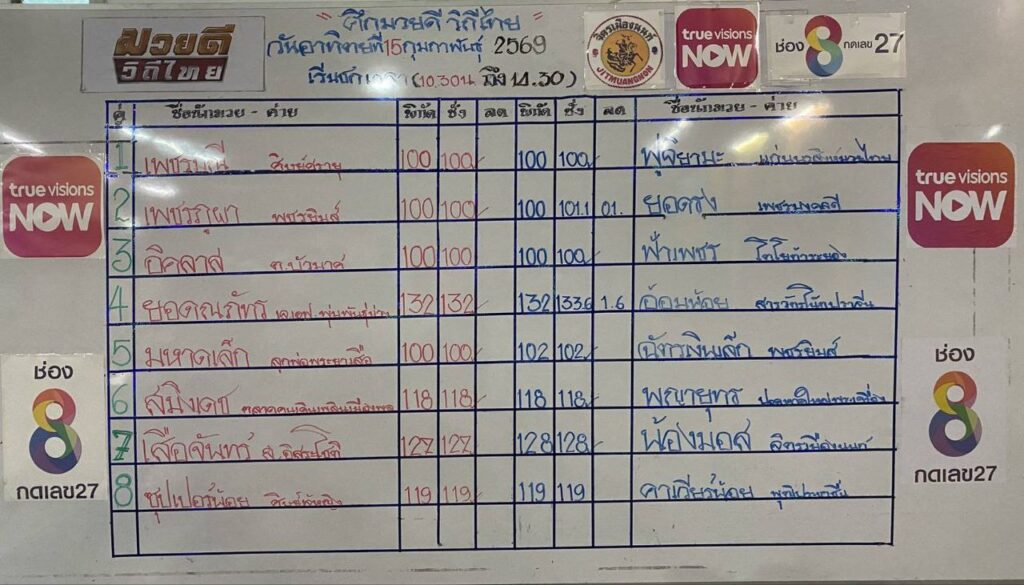 มวยดี
วิถีไทย
"ศึกมวยดี วิถีไทย"
วันอาทิตย์ที่ 15 กุมภาพันธ์ 2569
(10.30น ถึง 14.30)
จิตรเมืองนนท์
JITMUANGNON
true visions
NOW
ช่อง 8 กดเลข 27
คู่ ชื่อนักมวย - ค่าย พิกัด ชั่ง ลด พิกัด ชั่ง ลด ชื่อนักมวย - ค่าย
1 เพชรมณี 100 100 100 100
2 เพชรภูผา เพชรยินส์ 100 100 100 101.1 01. ยอดรัง
3 อีคลาส ต.บัวมาศ 100 100 100 100 ฟ้าเพชร
4 132 132 132 133.6 1.6 อ้อมน้อย
5 มหาดเล็ก ลูกพ่อพระยาเสือ 100 100 102 102 ฉัตรเงินเล็ก เพชรยินส์
6 สมิงเดช 118 118 118 118 พญายุทธ
7 เสือจันทร์ ส.อิสระโชติ 127 127 128 128 น้องมอส จิตรเมืองนนท์
8 ซุปเปอร์น้อย 119 119 119 119 คาเวียร์น้อย
true visions
NOW
true visions
NOW
ช่อง
8
กดเลข27
ช่อง
8
กดเลข27